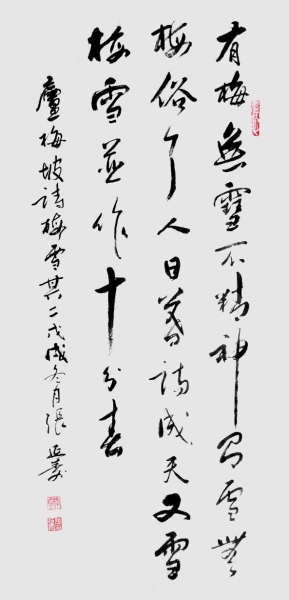 有梅無雪不精神雪無
梅俗了人日暮詩成天又雪
梅雪並作十分春
盧梅坡詩梅雪其二戊戌冬月張